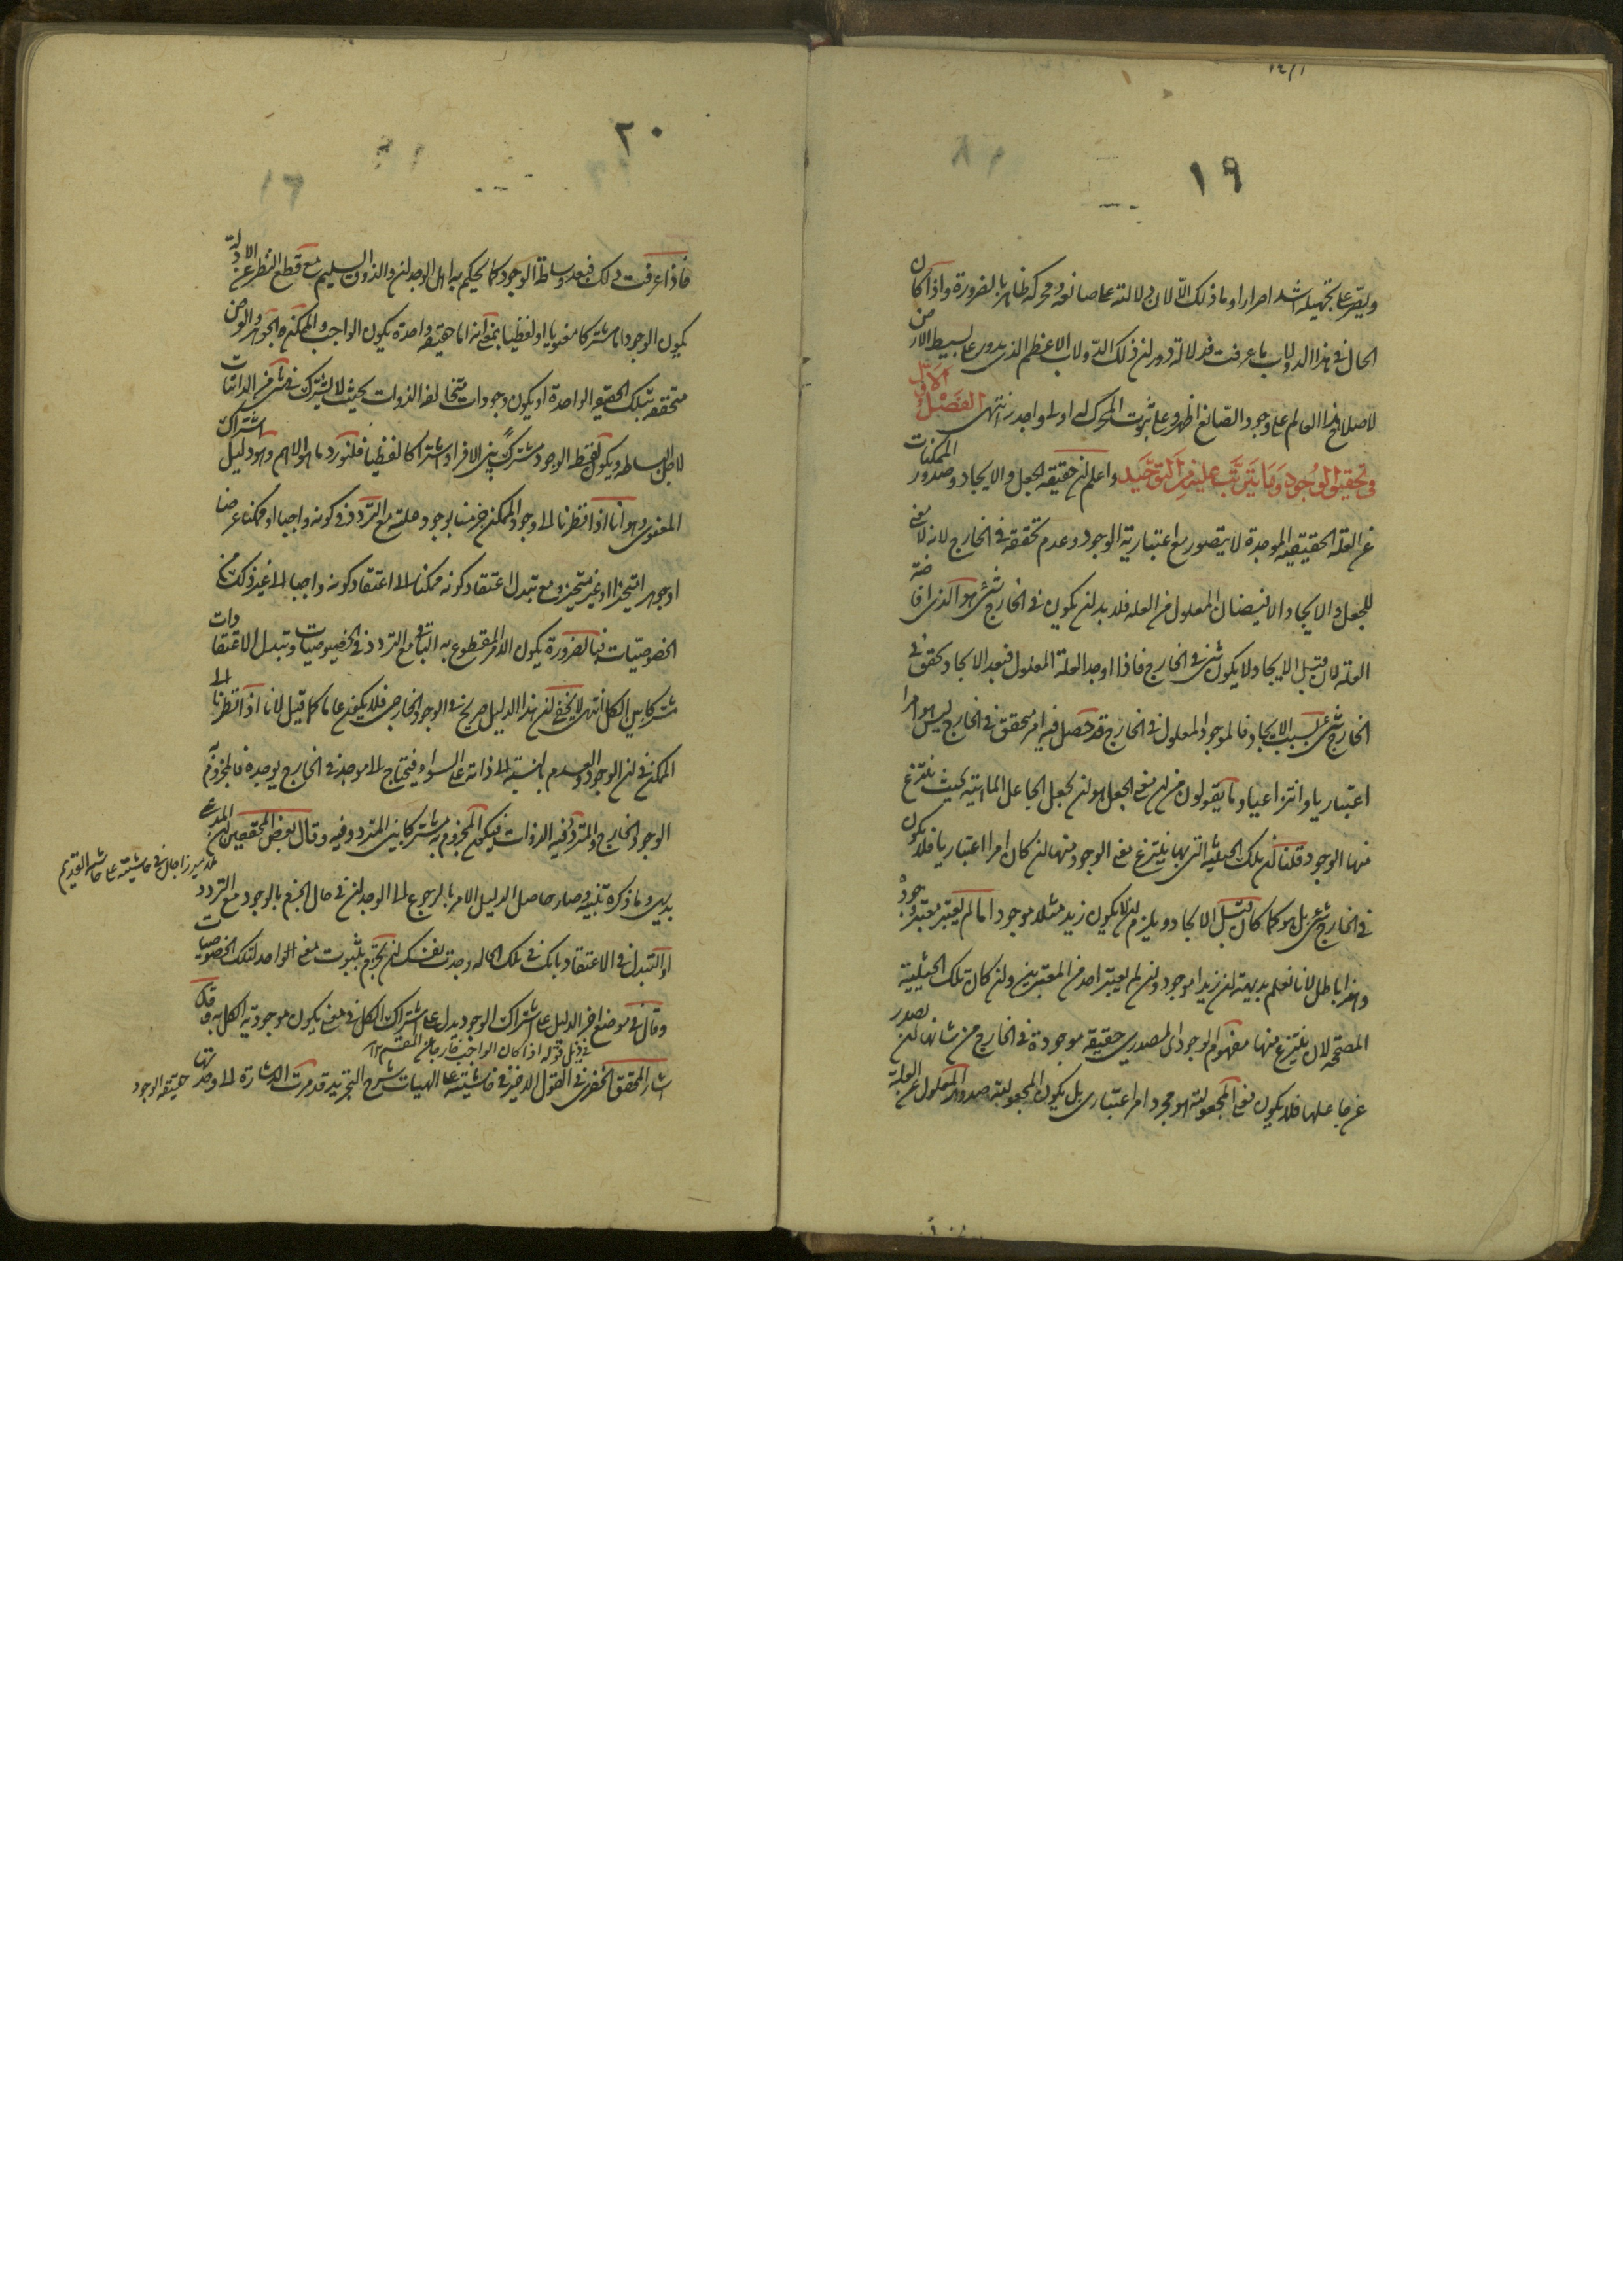 ١٩
ويصر على تجهيله اشد اصرارا وما ذلك الا لان دلالته على صانعه ومحركه ظاهر بالضرورة واذا كان
الحال فى هذا الدولاب ما عرفت فدلالة دوران ذلك الدولاب الاعظم الذى يدور على بسيط الارض
لاصلاح هذا العالم على وجود الصانع اظهر وعلى ثبوت المحرك له اولى واجدر انتهى الفصل الاول
فى تحقيق الوجود وما يترتب عليه من التوحيد واعلم ان حقيقة الجعل والايجاد وصدور الممكنات
عن العلة الحقيقية الموجدة لا يتصور مع اعتبارية الوجود وعدم تحققه فى الخارج لانه لا معنى
للجعل والايجاد الا فيضان المعلول من العلة فلا بد ان يكون فى الخارج شىء هو الذى افاضه
العلة لان قبل الايجاد لا يكون شىء فى الخارج فاذا اوجد العلة المعلول فبعد الايجاد تحقق فى
الخارج شىء بسبب الايجاد فالموجود المعلول فى الخارج قد حصل فيه امر متحقق فى الخارج ليس هو امرا
اعتباريا وانتزاعيا وما يقولون من ان معنى الجعل هو ان يجعل الجاعل الماهية بحيث ينتزع
منها الوجود قلنا ان تلك الحيثية التى بها ينتزع معنى الوجود منها ان كان امرا اعتباريا فلا يكون
فى الخارج شىء بل هو كما كان قبل الايجاد ويلزم ان لا يكون زيد مثلا موجودا ما لم يعتبر معتبر وجوده
وهذا باطل لانا نعلم بديهة ان زيدا موجود وان لم يعتبر احد من المعتبرين وان كان تلك الحيثية
المصححة لان ينتزع منها مفهوم الوجود اى المصدرى حقيقة موجودة فى الخارج من شانها ان تصدر
عن جاعلها فلا يكون معنى المجعولية هو مجرد امر اعتبارى بل يكون المجعولية صدور المعلول عن العلة
٢٠
فاذا عرفت ذلك فبعد وساطة الوجود كما يحكم به اهل الوجدان والذوق السليم مع قطع النظر عن الادلة
يكون الوجود اما مشتركا معنويا او لفظيا بمعنى انه اما حقيقة واحدة يكون الواجب والممكن والجوهر والعرض
متحققة بتلك الحقيقة الواحدة او يكون وجودات متخالفة الذوات بحيث لا يشترك فى شىء من الذاتيات
لاجل البساطة ويكون لفظ الوجود مشتركا بين الافراد اشتراكا لفظيا فلنورد ما هو الاهم وهو دليل اشتراك
المعنوى وهو انا اذا نظرنا الى وجود الممكن جزمنا بوجود علته مع التردد فى كونه واجبا او ممكنا عرضا
او جوهرا متحيزا او غير متحيز ومع تبدل اعتقاد كونه ممكنا الى اعتقاد كونه واجبا الى غير ذلك من
الخصوصيات فبالضرورة يكون الامر المقطوع به الباقى مع التردد فى الخصوصيات وتبدل الاعتقادات
مشتركا بين الكل انتهى لا يخفى ان هذا الدليل صريح فى الوجود الخارجى فلا يكون عاما كما قيل لانا اذا نظرنا الى
الممكن فى ان الوجود والعدم بالنسبة الى ذاته على السواء فيحتاج الى موجد فى الخارج يوجده فالمجزوم به
الوجود الخارج والمتردد فيه الذوات فيكون المجزوم به مشتركا بين المتردد فيه وقال بعض المحققين ان المدعى
ملا ميرزا جان فى حاشيته على حاشية القديم
بديهى وما ذكره تنبيه وصار حاصل الدليل الامر بالرجوع الى الوجدان فى حال الجزم بالوجود مع التردد
او التبدل فى الاعتقاد بانك فى تلك الحالة وجدت نفسك ان تجزم بثبوت معنى الواحد لتلك الخصوصيات
وقال فى موضع اخر الدليل على اشتراك الوجود يدل على اشتراك الكل فى معنى يكون موجودية الكل به وقد
فى ذيل قوله اذا كان الواجب خارجا عن المقسم ١٢
اشار المحقق الخفرى فى القول الاخير فى حاشيته على الهيات شرح التجريد قد مرت الاشارة الى وحدتها حقيقة الوجود